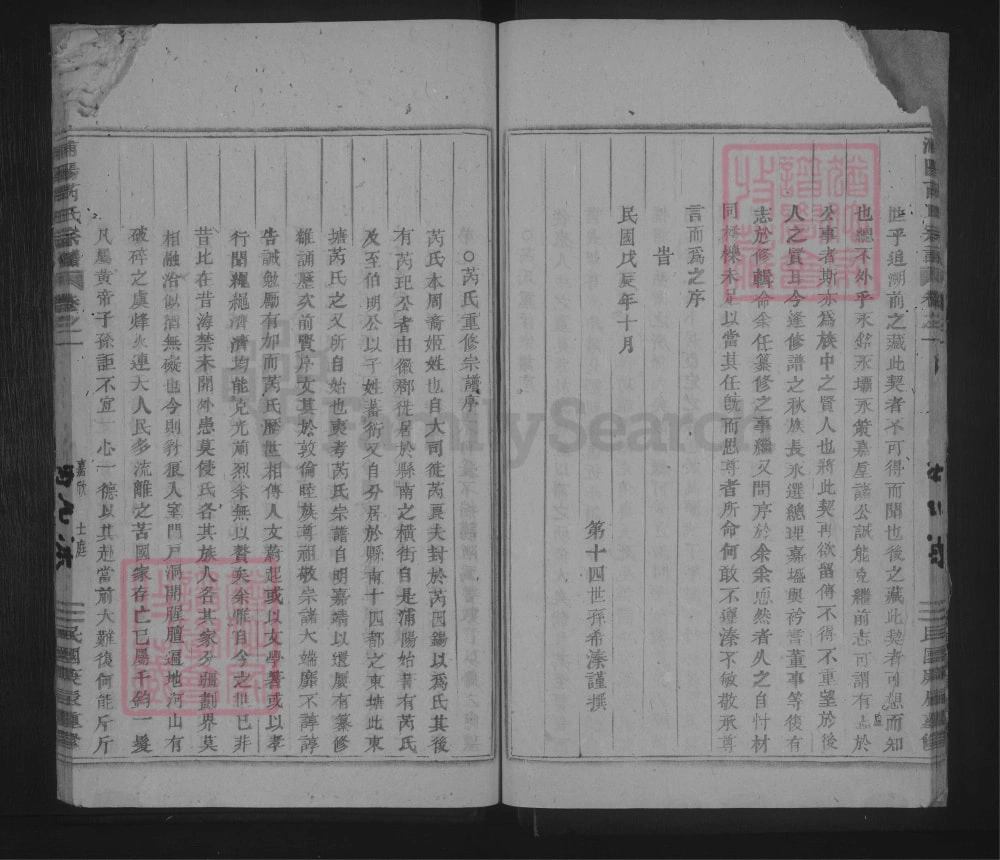 世乎追溯前之藏此契者不可得而聞也後之藏此契者可想而知
也總不外乎永銘永壩永黨嘉星諸公誠能克繼前志可謂有志於
公事者斯亦為族中之賢人也將此契再欲留傳不得不重望於後
人之賢且今逢修譜之秋族長永選總理嘉塭與衿耆董事等復有
志於修輯命余任纂修之事繼又問序於余余恧然者久之自忖材
同樗櫟未足以當其任旣而思尊者所命何敢不遵溱不敏敬承尊
言而為之序
旹
民國戊辰年十月
第十四世孫希溱謹撰
○芮氏重修宗譜序
芮氏本周裔姬姓也自大司徒芮夏夫封於芮因鍚以為氏其後
有芮玘公者由徽郡徙居於縣南之橫街自是浦陽始著有芮氏
及至伯明公以子姓蕃衍又自分居於縣南十四都之東塘此東
塘芮氏之又所自始也夷考芮氏宗譜自明嘉靖以還屢有纂修
雒誦歷次前賢序文其於敦倫睦族尊祖敬宗諸大端靡不諄諄
告誡勉勵有加而芮氏歷世相傳人文蔚起或以文學著或以孝
行聞繩繩濟濟均能克光前烈余無以贅矣余雅自今之世已非
昔比在昔海禁未開外患莫侵氏各其族人各其家分疆劃界莫
相融治似猶無礙也今則豺狼入室門戶洞開腥膻遍地河山有
破碎之虞烽火連天人民多流離之苦國家存亡已屬千鈞一髮
凡屬黃帝子孫詎不宜一心一德以其赴當前大難復何能斤斤
嘉欣 士庭
FamilySearch